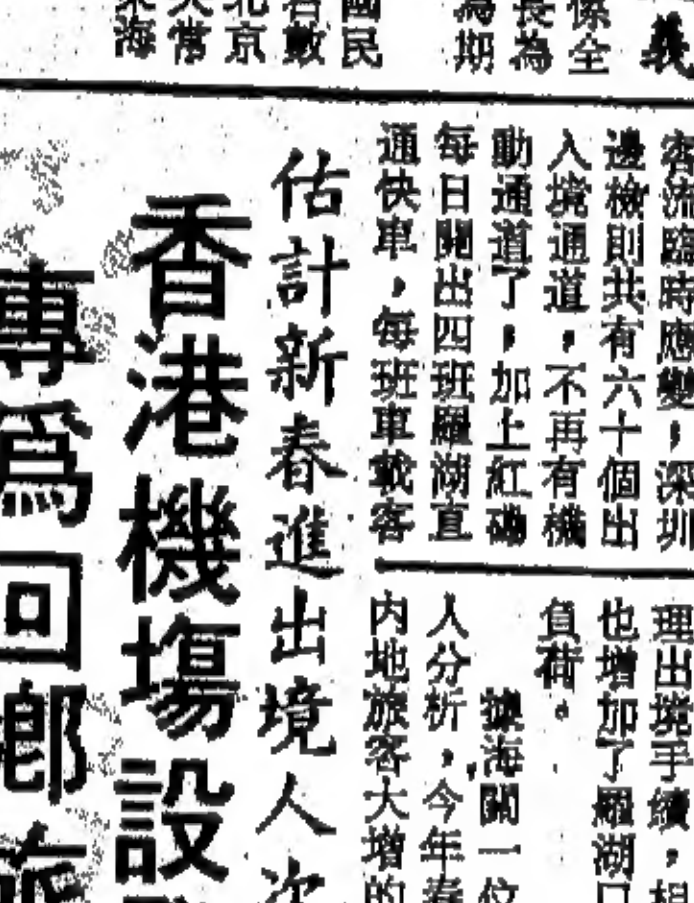 義
係全
長為
為期
國民
數
北京
常
海
客流臨時應變，深圳
邊檢則共有六十個出
入境通道，不再有機
動通道了，加上紅磡
每日開出四班羅湖直
通快車，每班車載客
理出境手續，
也增加了羅湖口
負荷。
據海關一位
人分析，今年春
內地旅客大增的
估計新春進出境人次
香港機場設
專為回鄉旅